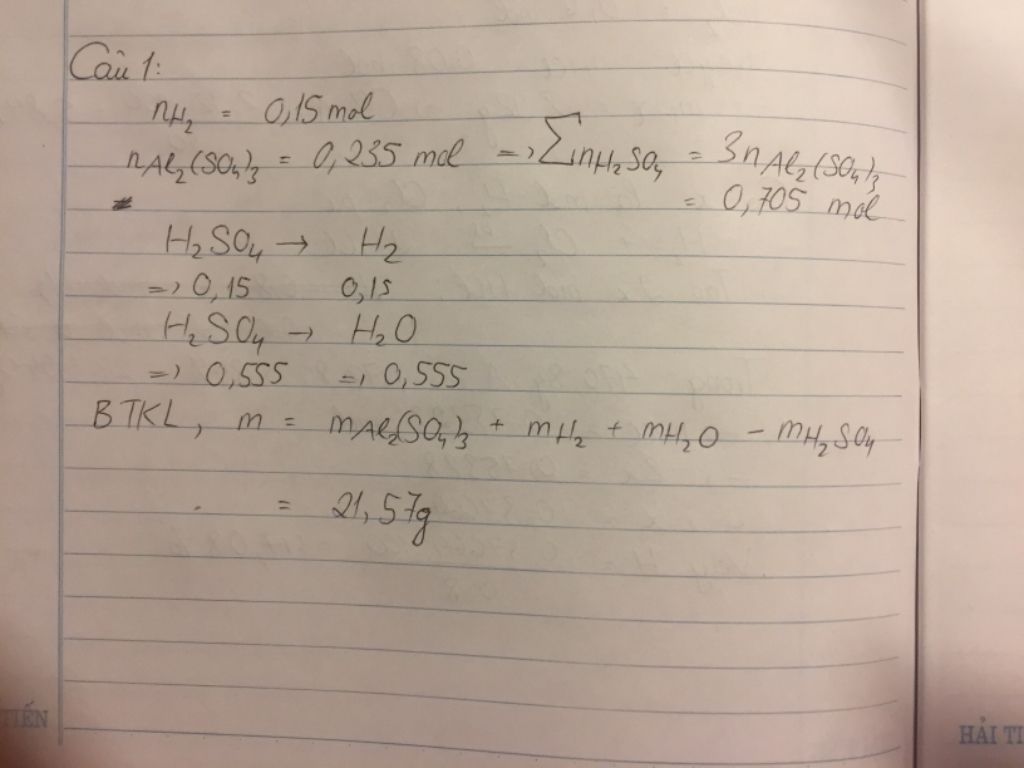 Câu 1:
nH₂ = 0,15 mol
nAl₂(SO₄)₃ = 0,235 mol => ∑nH₂SO₄ = 3nAl₂(SO₄)₃
= 0,705 mol
H₂SO₄ → H₂
=> 0,15 0,15
H₂SO₄ → H₂O
=> 0,555 => 0,555
BTKL, m = mAl₂(SO₄)₃ + mH₂ + mH₂O - mH₂SO₄
= 21,57g
TIẾN
HẢI TI